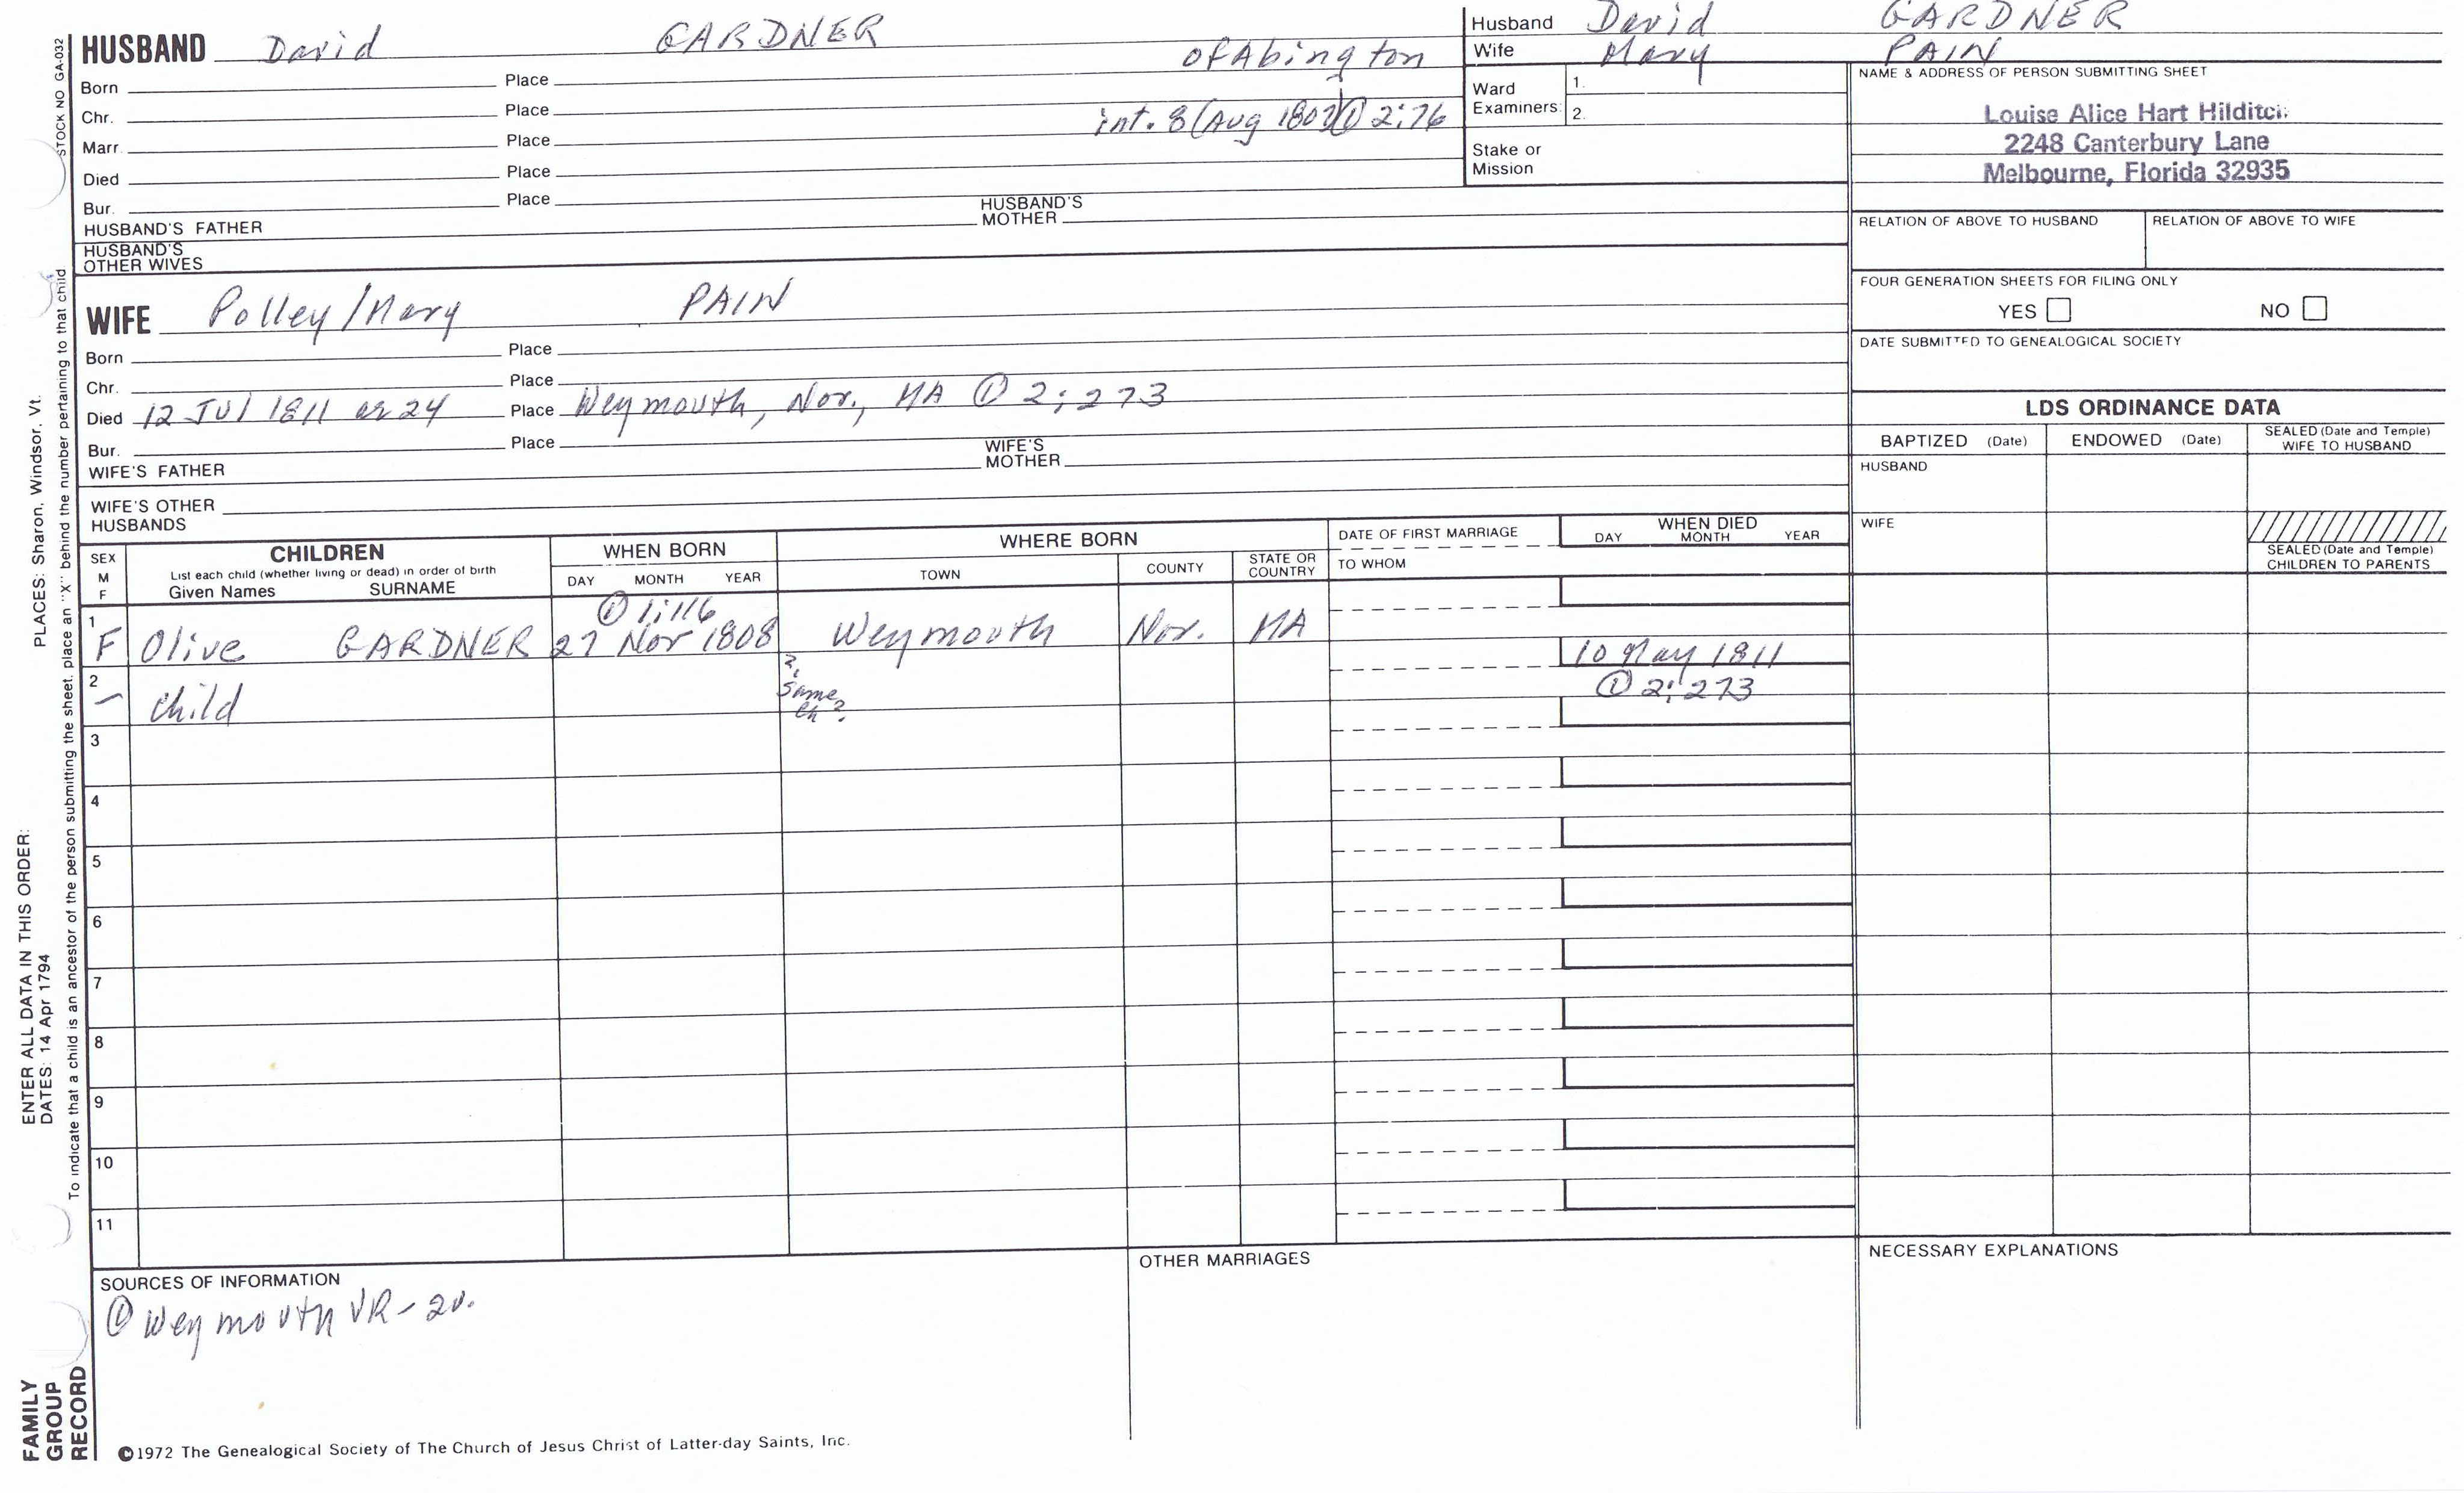 HUSBAND David GARDNER of Abington
Born Place
Chr. Place
Marr. Place int. 8 (Aug 1807) ① 2:76
Died Place
Bur. Place
HUSBAND'S FATHER HUSBAND'S MOTHER
HUSBAND'S OTHER WIVES
Husband David GARDNER
Wife Mary PAIN
Ward Examiners: 1.
2.
Stake or Mission
NAME & ADDRESS OF PERSON SUBMITTING SHEET
Louise Alice Hart Hilditch
2248 Canterbury Lane
Melbourne, Florida 32935
RELATION OF ABOVE TO HUSBAND RELATION OF ABOVE TO WIFE
FOUR GENERATION SHEETS FOR FILING ONLY
YES NO
DATE SUBMITTED TO GENEALOGICAL SOCIETY
WIFE Polley/Mary PAIN
Born Place
Chr. Place
Died 12 Jul 1811 ae 24 Place Weymouth, Nor., MA ① 2:273
Bur. Place
WIFE'S FATHER WIFE'S MOTHER
WIFE'S OTHER HUSBANDS
LDS ORDINANCE DATA
BAPTIZED (Date) ENDOWED (Date) SEALED (Date and Temple) WIFE TO HUSBAND
HUSBAND
WIFE
SEALED (Date and Temple) CHILDREN TO PARENTS
SEX M F
CHILDREN
List each child (whether living or dead) in order of birth
Given Names SURNAME
WHEN BORN
DAY MONTH YEAR
WHERE BORN
TOWN COUNTY STATE OR COUNTRY
DATE OF FIRST MARRIAGE
TO WHOM
WHEN DIED
DAY MONTH YEAR
① 1:116
1 F Olive GARDNER 27 Nov 1808 Weymouth Nor. MA
10 May 1811
2 – child ? Same ch? ① 2:273
3
4
5
6
7
8
9
10
11
SOURCES OF INFORMATION
① Weymouth VR – 2v.
OTHER MARRIAGES
NECESSARY EXPLANATIONS
©1972 The Genealogical Society of The Church of Jesus Christ of Latter-day Saints, Inc.
STOCK NO GA-032
To indicate that a child is an ancestor of the person submitting the sheet, place an "X" behind the number pertaining to that child
ENTER ALL DATA IN THIS ORDER:
PLACES: Sharon, Windsor, Vt.
DATES: 14 Apr 1794
FAMILY
GROUP
RECORD